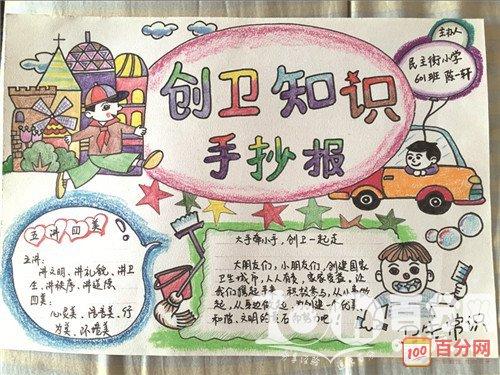 创卫知识
手抄报
主办人
民主街小学
601班 陈一轩
五讲四美
五讲:
讲文明、讲礼貌、讲卫
生、讲秩序、讲道德
四美:
心灵美、语言美、行
为美、环境美
大手牵小手,创卫一起走
大朋友们,小朋友们,创建国家
卫生城市,人人有责,
我们携起手来,积极参与,从小事做
起,从身边做起,
和谐、文明的
卫生常识
100
百分网